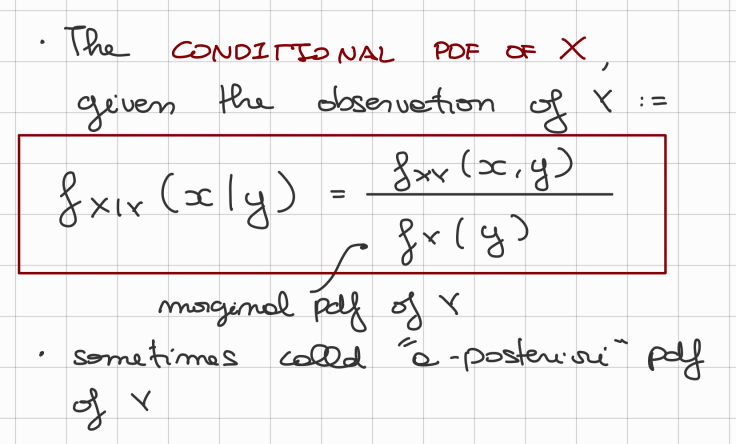 · The CONDITIONAL PDF OF X,
given the observation of Y :=
f_{X|Y} (x|y) = f_{XY} (x,y) / f_Y (y)
marginal pdf of Y
· sometimes called "a-posteriori" pdf
of Y